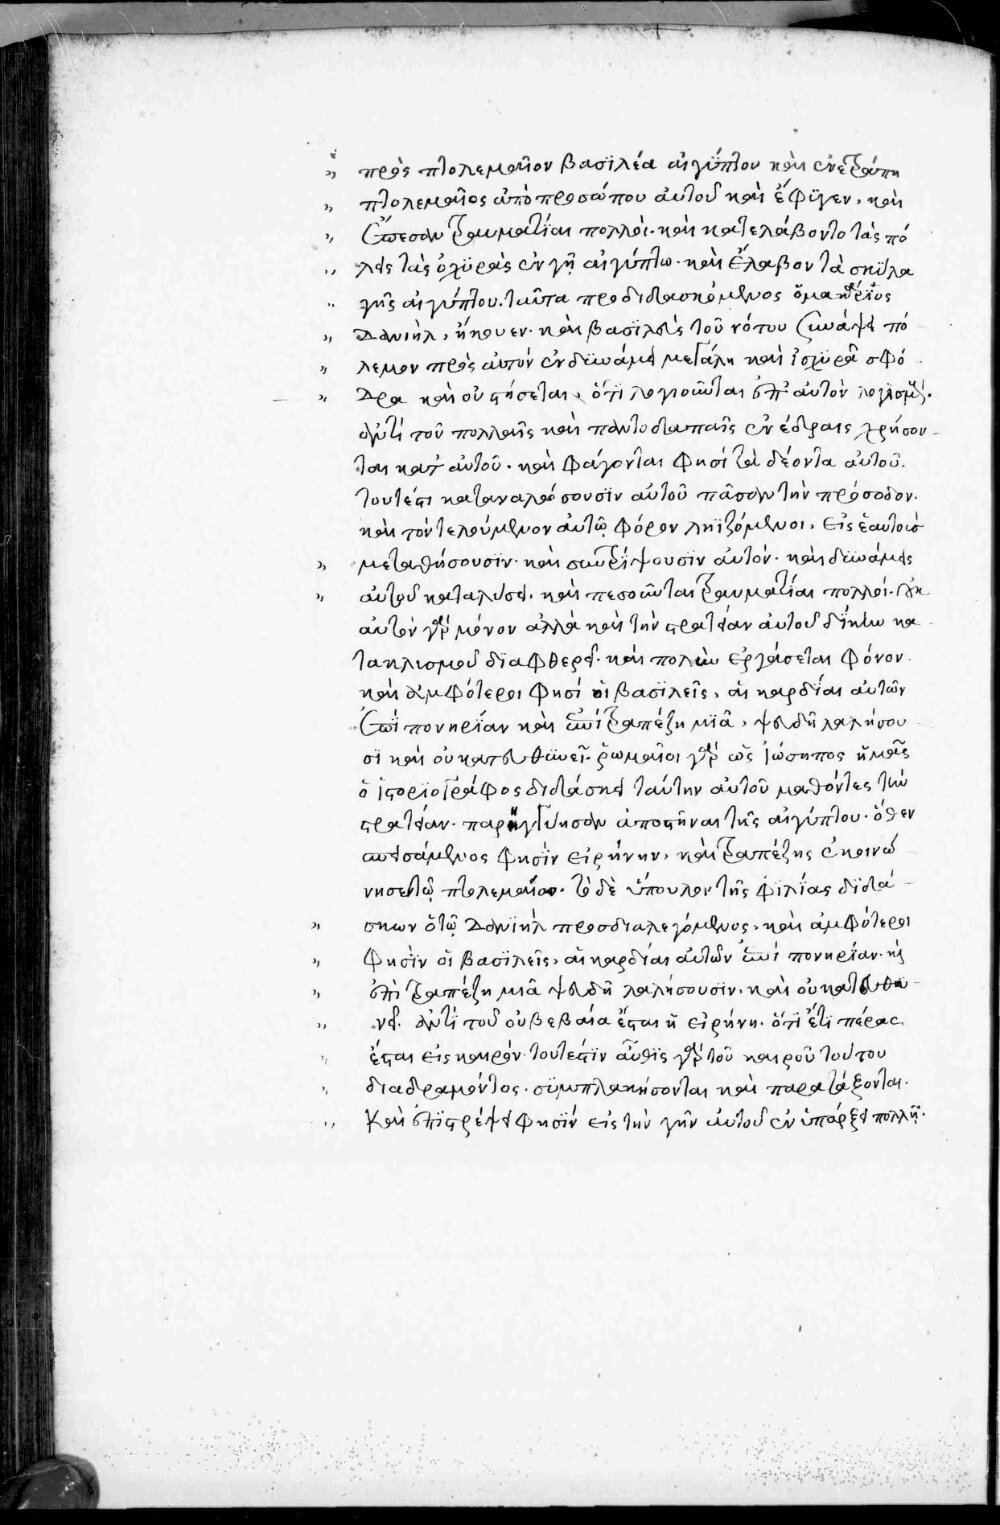 πρὸς πτολεμαῖον βασϊλέα αἰγύπτου καὶ ἐνετράπη
πτολεμαῖος ἀπὸ προσώπου αὐτοῦ καὶ ἔφϊγεν, καὶ
ἔπεσον τραυματίαι πολλοὶ· καὶ κατελάβοντο τὰς πό
λεις τὰς ὀχϋρὰς ἐν γῆ αἰγύπτω· καὶ ἔλαβον τὰ σκῦλα
γῆς αἰγύπτου. ταῦτα προδιδασκόμενος ὁ μακάριος
Δανιὴλ, ἤκουεν· καὶ βασϊλεὺς τοῦ νότου συνάψει πό
λεμον πρὸς αὐτὸν ἐν δϋνάμει μεγάλη καὶ ἰσχϋρᾶ σφό
δρα καὶ οὐ στήσεται, ὅτϊ λογιοῦνται ἐπ' αὐτὸν λογισμούς.
ἀντὶ τοῦ πολλαῖς καὶ παντοδαπαῖς ἐνέδραις χρήσον
ται κατ' αὐτοῦ· καὶ φάγονται φησὶ τὰ δέοντα αὐτοῦ.
τουτέστι καταναλώσουσϊν αὐτοῦ πᾶσαν τὴν πρόσοδον.
καὶ τὸν τελούμενον αὐτῷ φόρον ληϊζόμενοι, εἰς ἑαυτοὺς
μεταθήσουσϊν· καὶ συντρίψουσϊν αὐτόν· καὶ δϋνάμεις
αὐτοῦ καταλύσει. καὶ πεσοῦνται τραυματίαι πολλοί. οὐκ
αὐτὸν γὰρ μόνον ἀλλὰ καὶ τὴν στρατείαν αὐτοῦ δίκην κα
τακλυσμοῦ διαφθερεῖ· καὶ πολὺν ἐργάσεται φόνον.
καὶ ἀμφότεροι φησὶ οἱ βασϊλεῖς, αἱ καρδίαι αὐτῶν
ἐπὶ πονηρίαν καὶ ἐπὶ τραπέζη μϊᾶ, ψευδῆ λαλήσου
σϊ καὶ οὐ κατευθϋνεῖ. ῥωμαῖοι γὰρ ὡς ἰώσηπος ἡμᾶς
ὁ ἱστοριογράφος διδάσκει ταύτην αὐτοῦ μαθόντες τὴν
στρατείαν· παρηγγύησαν ἀποστῆναι τῆς αἰγύπτου· ὅθεν
σπεισάμενος φησὶν εἰρήνην, καὶ τραπέζης ἐκοινώ
νησε τῷ πτολεμαίω. τὸ δὲ ὕπουλον τῆς φιλίας διδά
σκων ὁ τῷ Δανϊὴλ προσδιαλεγόμενος, καὶ ἀμφότεροι
φησὶν οἱ βασιλεῖς, αἱ καρδίαι αὐτῶν ἐπὶ πονηρίαν. καὶ
ἐπὶ τραπέζη μιᾶ ψευδῆ λαλήσουσιν. καὶ οὐ κατευθυ
νεῖ. ἀντὶ τοῦ οὐ βεβαία ἔσται ἡ εἰρήνη. ὅτϊ ἔτϊ πέρας
ἔσται εἰς καιρόν· τουτέστϊν αὖθις γὰρ τοῦ καιροῦ τούτου
διαδραμόντος. συμπλακήσονται καὶ παρατάξονται.
Καὶ ἐπϊστρέψει φησΐν εἰς τὴν γῆν αὐτοῦ ἐν ὑπάρξει πολλῇ.